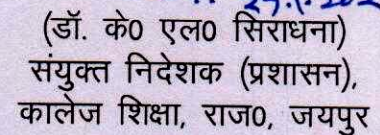 (डॉ. के0 एल0 सिराधना)
संयुक्त निदेशक (प्रशासन),
कालेज शिक्षा, राज0, जयपुर